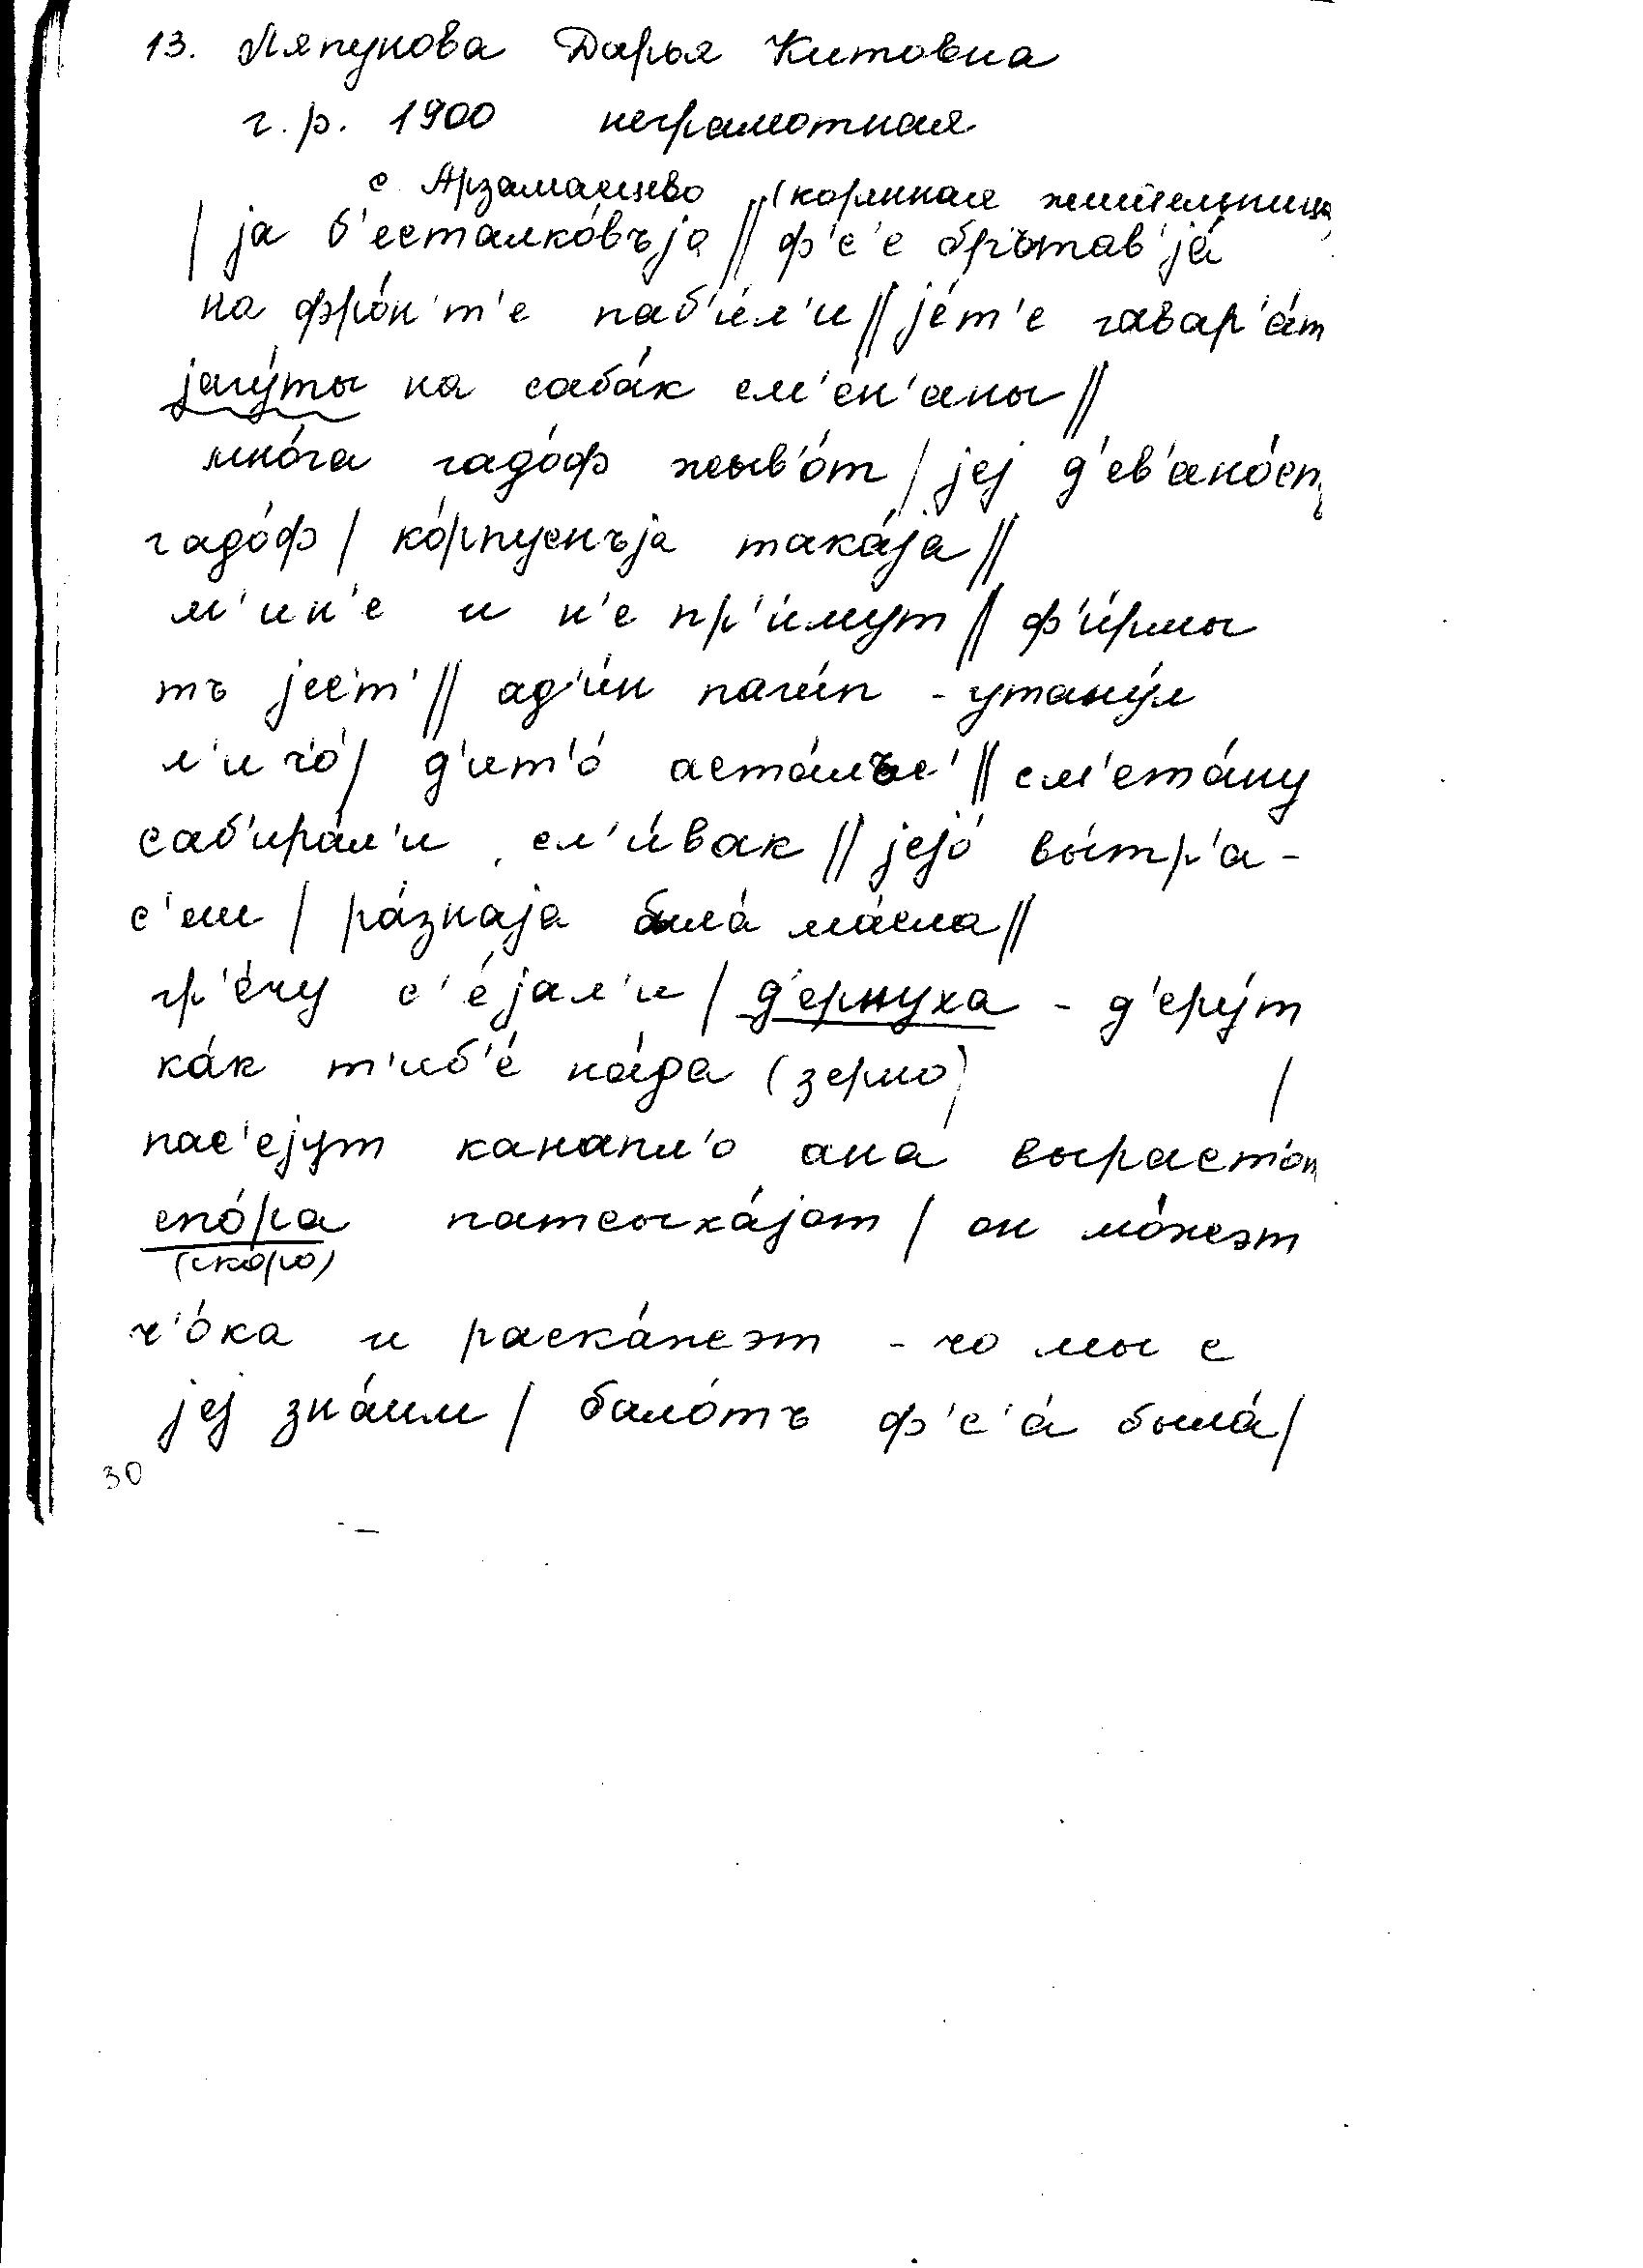 13. Ляпунова Дарья Китовна
г.р. 1900 неграмотная
с. Арзамасцево (коренная жительница
| jа б'есталко́въjа || ф'с'е брътав'jа́
на фро́н'т'е паб'и́л'и || jе́т'е гавар'а́т
jагу́ты на саба́к см'е́н'аны ||
мно́га гадо́ф жыв'о́т | jеj д'ев'ано́ст
гадо́ф | ко́рпуснъjа така́jа ||
м'ин'е и н'е пр'и́мут || ф'и́рмы
тъ jес'т' || ад'и́н паги́п - утану́л
л'и чо́ | д'ит'о́ аста́лъс' || см'ета́ну
саб'ира́л'и сл'и́вак || jеjо́ вы́тр'а-
с'еш | ра́знаjа была́ ма́сла ||
гр'е́чу с'е́jал'и | д'ернуха - д'еру́т
ка́к т'иб'е́ на́да (зерно)
пас'еjут канапл'о ана́ вырастʼо́т |
спо́ра патсыха́jот | он мо́жэт
(скоро)
ч'о́ка и раска́жэт - чо мы с
jеj зна́им | бало́тъ ф'с'а́ была́ |
30